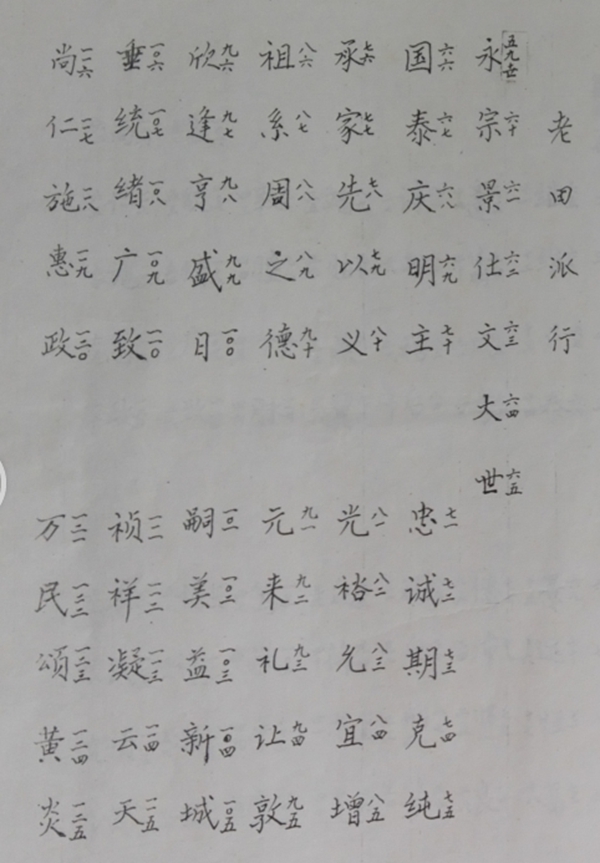 老田派行
永五九世 宗六十 景六一 仕六二 文六三 大六四 世六五
国六六 泰六七 庆六八 明六九 主七十 忠七一 诚七二 期七三 克七四 纯七五
承七六 家七七 先七八 以七九 义八十 光八一 裕八二 允八三 宜八四 增八五
祖八六 系八七 周八八 之八九 德九十 元九一 来九二 礼九三 让九四 敦九五
欣九六 逢九七 亨九八 盛九九 日一〇〇 嗣一〇一 美一〇二 益一〇三 新一〇四 城一〇五
垂一〇六 统一〇七 绪一〇八 广一〇九 致一一〇 祯一一一 祥一一二 凝一一三 云一一四 天一一五
尚一一六 仁一一七 施一一八 惠一一九 政一二〇 万一二一 民一二二 颂一二三 黄一二四 炎一二五